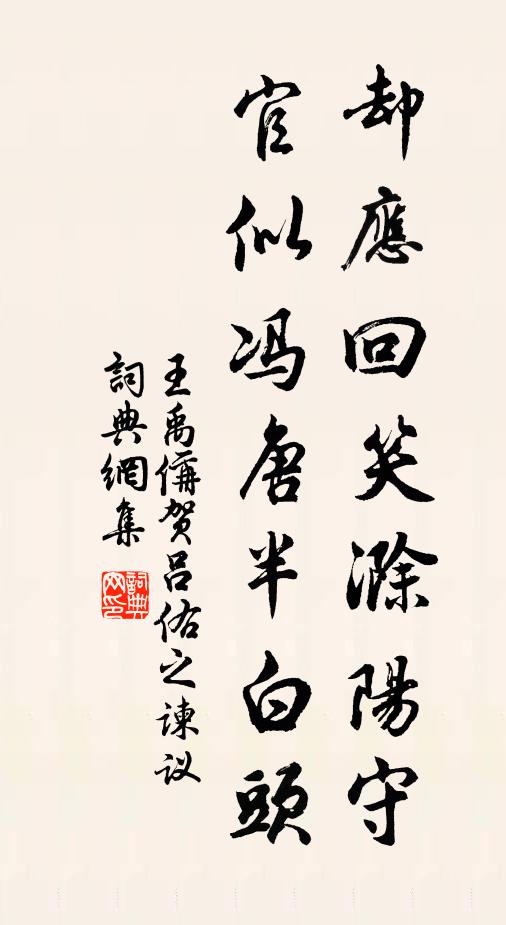 却應回笑滁陽守
官似冯唐半白頭
王禹偁賀吕佑之諫议
詞典網集
詞典网印